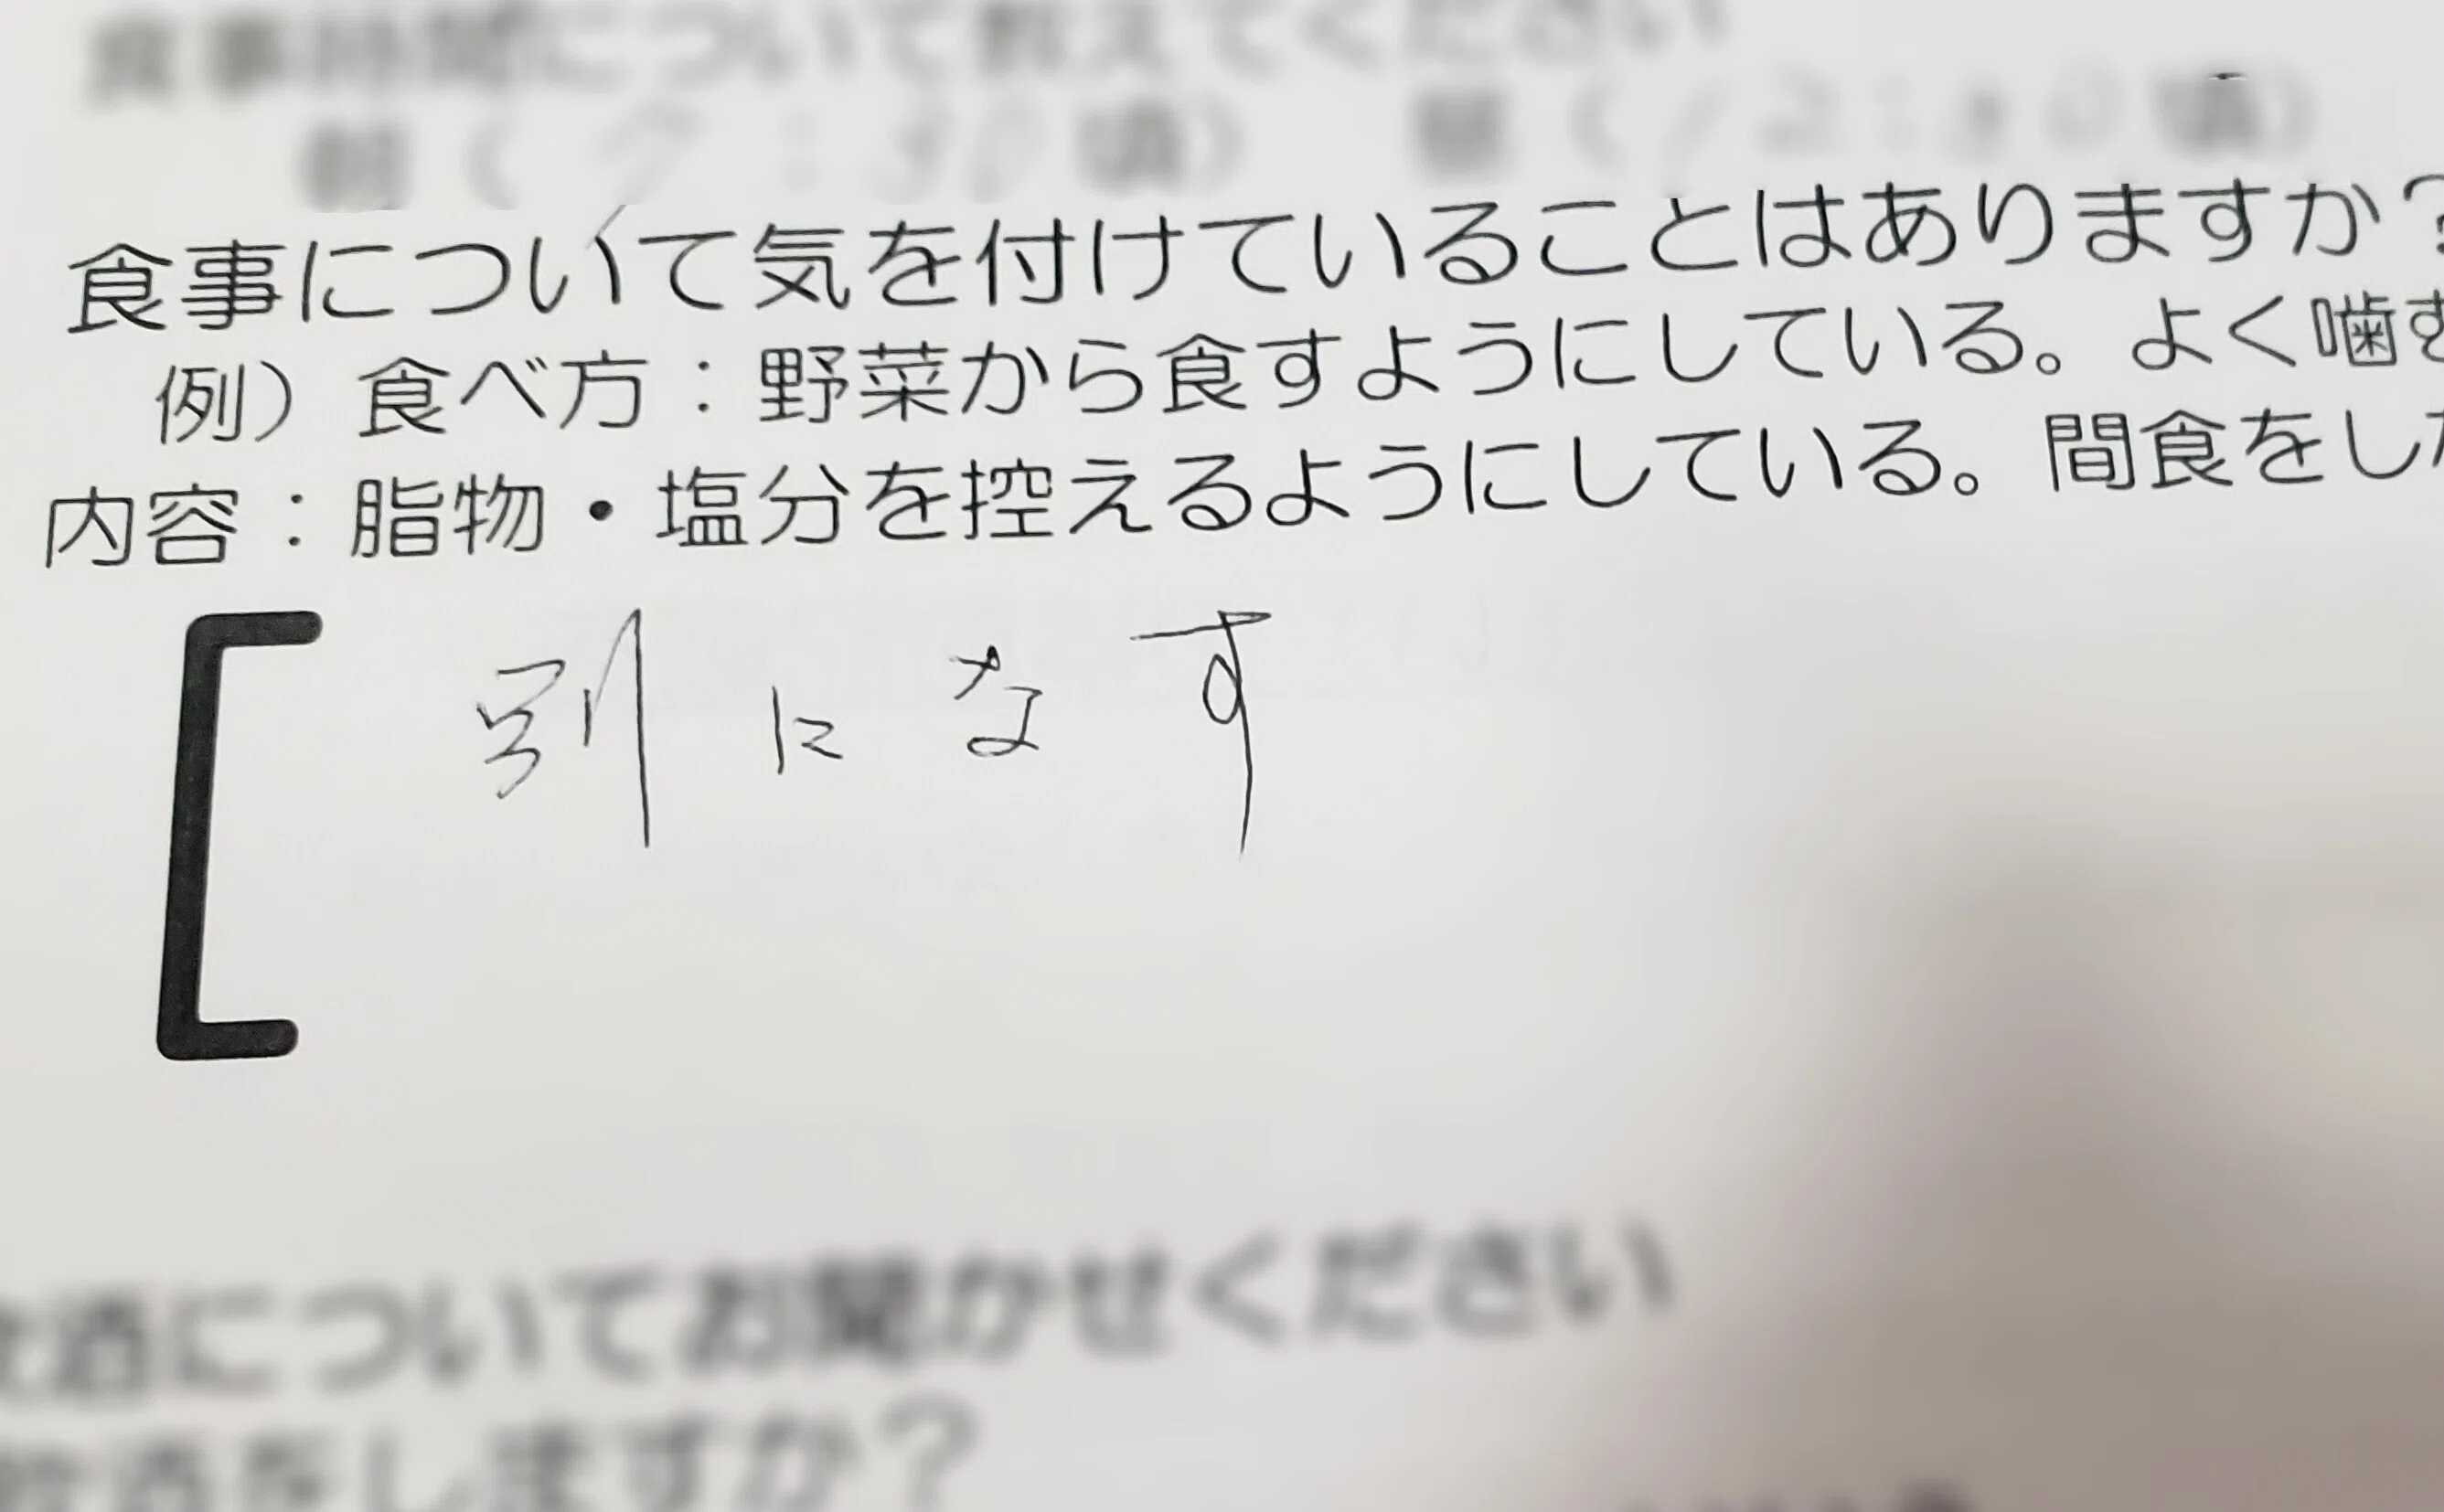 食事時間について教えてください
朝（7：30頃） 昼（12：30頃）
食事について気を付けていることはありますか？
例）食べ方：野菜から食すようにしている。よく噛む
内容：脂物・塩分を控えるようにしている。間食をした
別になす
飲酒についてお聞かせください
飲酒をしますか？